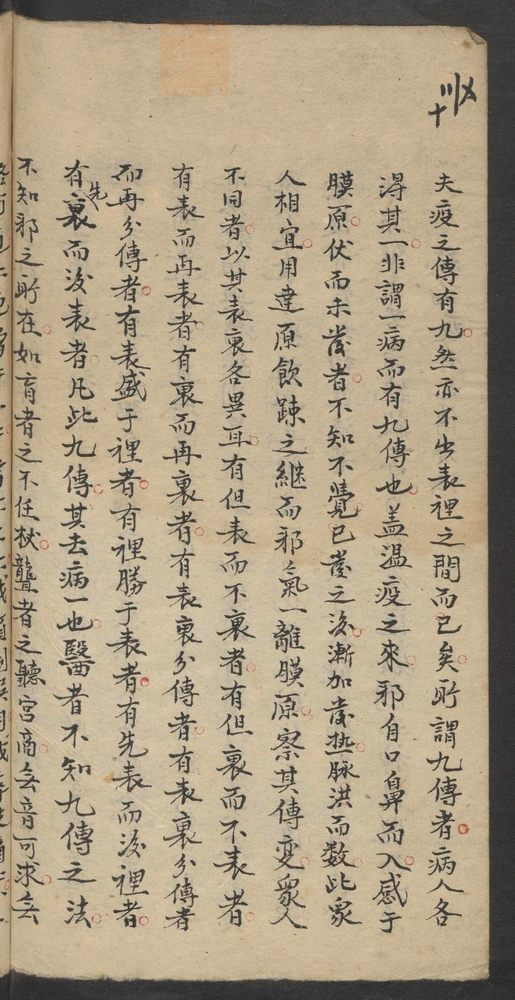 夫疫之傳有九然亦不出表裡之間而已矣所謂九傳者病人各
淂其一非謂一病而有九傳也盖溫疫之來邪自口鼻而入感于
膜原伏而未發者不知不覺已發之後漸加發热脉洪而数此衆
人相宜用達原飲踈之継而邪氣一離膜原察其傳變衆人
不同者以其表裏各異耳有但表而不裏者有但裏而不表者
有表而再表者有裏而再裏者有表裏分傳者有表裏分傳者
而再分傳者有表盛于裡者有裡勝于表者有先表而後裡者
有先裏而後表者凡此九傳其去病一也醫者不知九傳之法
不知邪之所在如盲者之不任杖聾者之聽宮商無音可求無